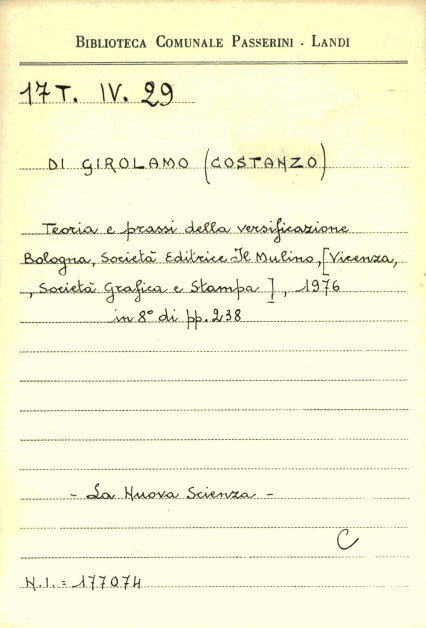 BIBLIOTECA COMUNALE PASSERINI - LANDI
17 T. IV. 29
DI GIROLAMO (COSTANZO)
Teoria e prassi della versificazione
Bologna, Società Editrice Il Mulino, [Vicenza,
, Società Grafica e Stampa ], 1976
in 8° di pp. 238
- La Nuova Scienza -
C
N.I. = 177074